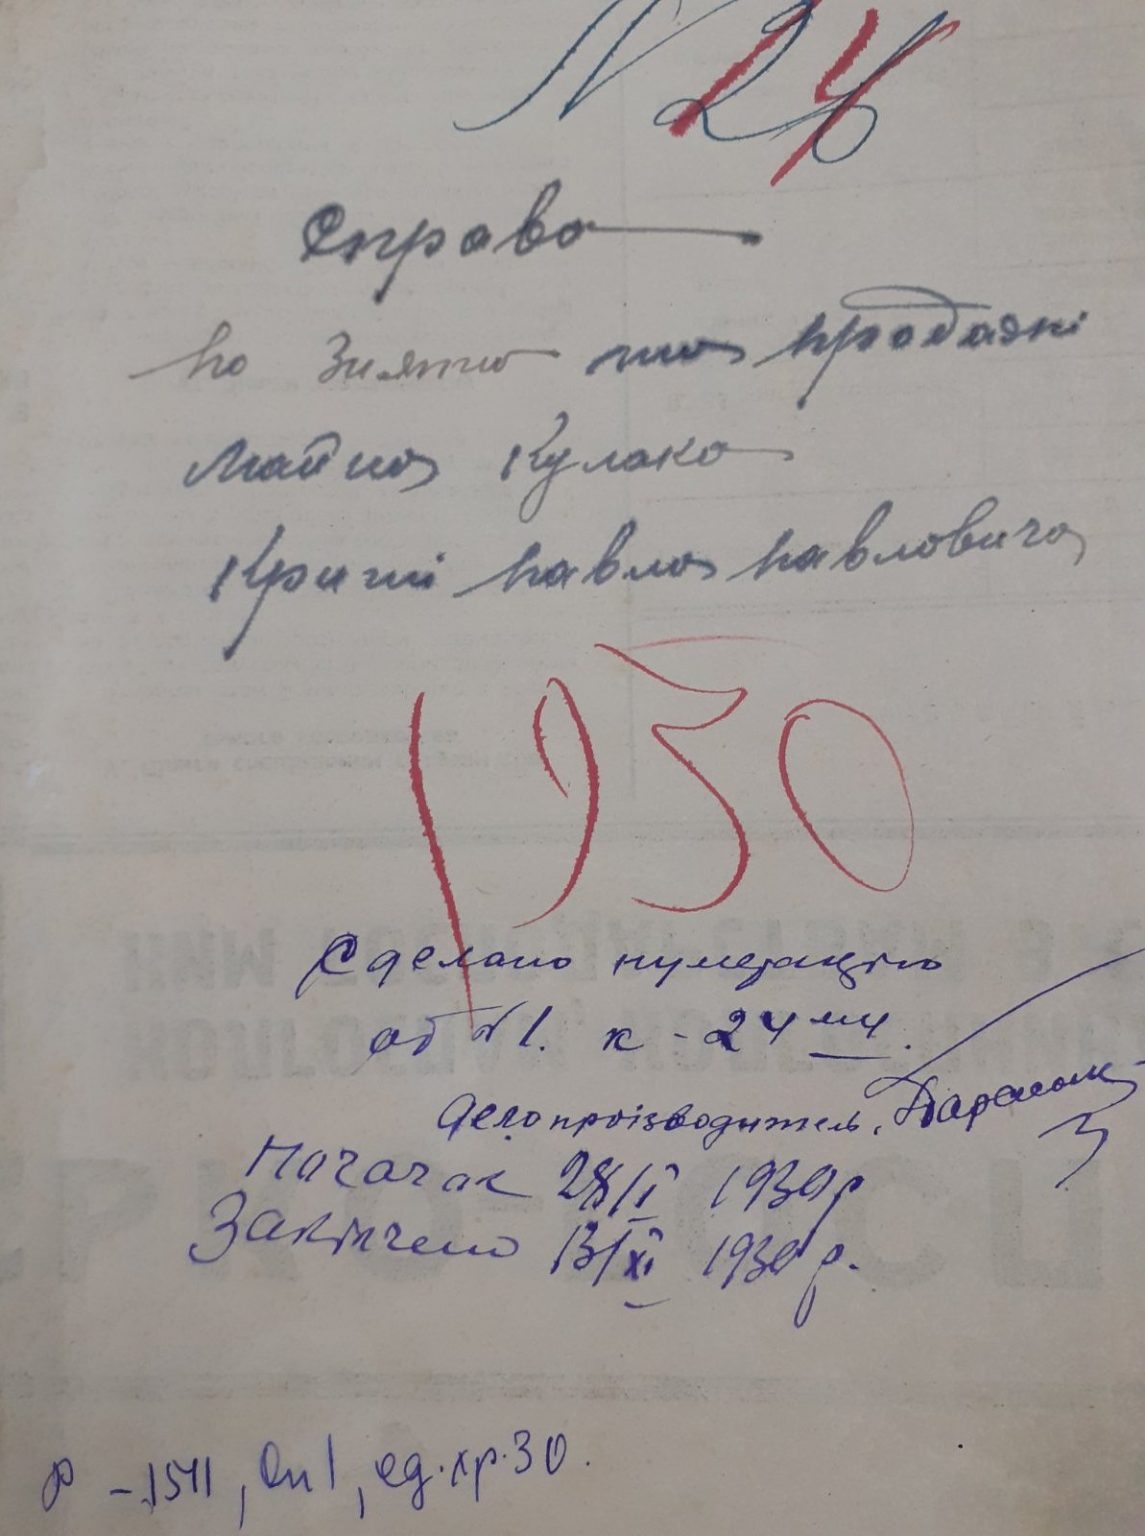 N 24
Справа
по Зняттю та продажі
Майна Кулака
Крипі Павла Павловича
1930
Сделано нумерацію
от №1. к - 24 ми.
Делопроізводитель,
Почачак 28/I 1930 р
Закінчено 13/XI 1930 р.
Р - 1511, Оп 1, ед. хр. 30.